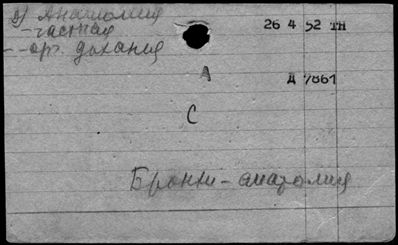 в) Анатомия
- частная
-- орг. дыхания
26 4 52 тн
А
Д 7861
С
Бронхи - анатомия